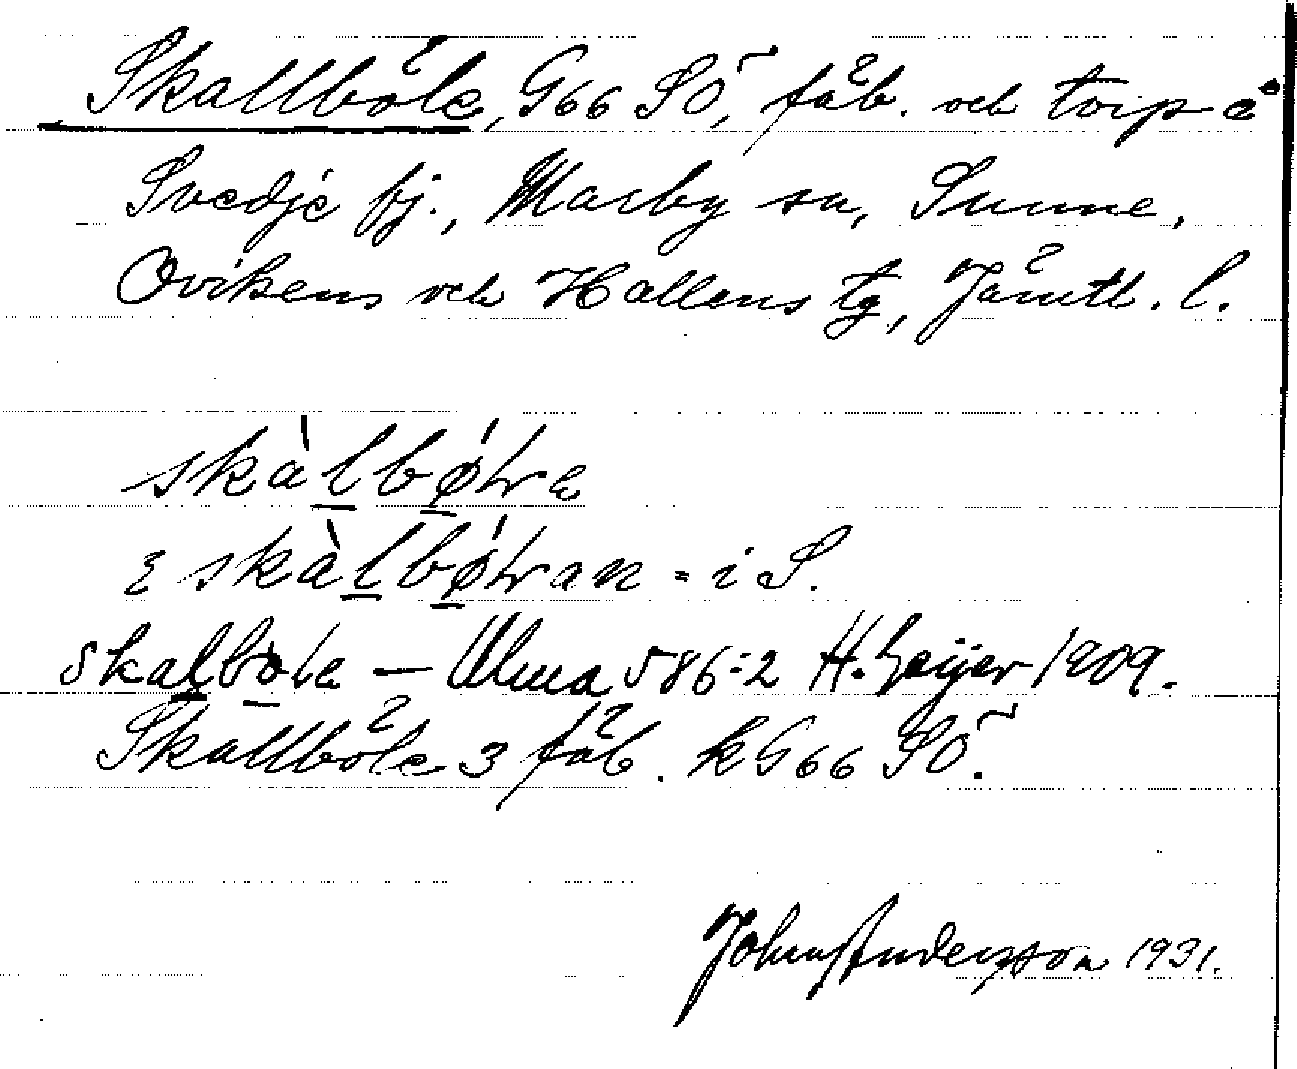 Skallböle, G66 SÖ, fäb. och torp å
Svedje fj., Marby sn, Sunne,
Ovikens och Hallens tg, Jämtl. l.
skàlbǿlɛ
ɛ skàlbǿlan = i S.
skalbola — Ulma 586:2 H. Geijer 1909.
Skallböle 3 fäb. k G66 SÖ.
John Andersson 1931.